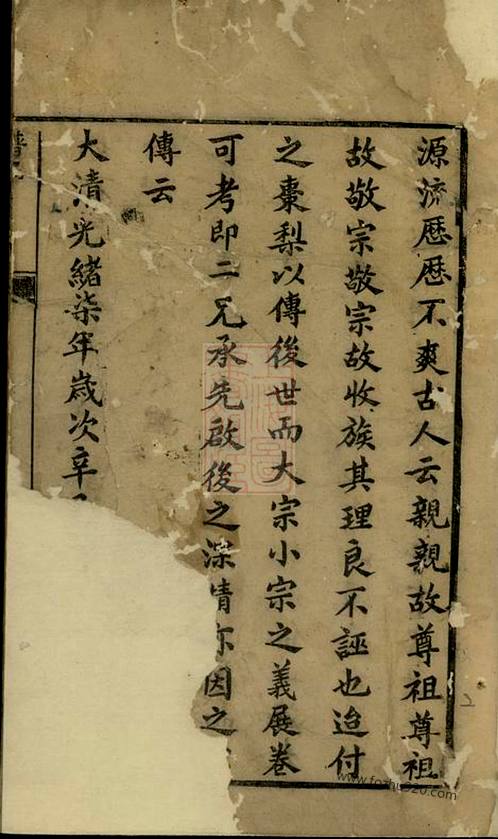 源流歷歷不爽古人云親親故尊祖尊祖
故敬宗敬宗故收族其理良不誣也迨付
之棗梨以傳後世而大宗小宗之義展卷
可考即二兄承先啟後之深情亦因之
傳云
大清光緒柒年歲次辛
譜
www.fozhu920.com